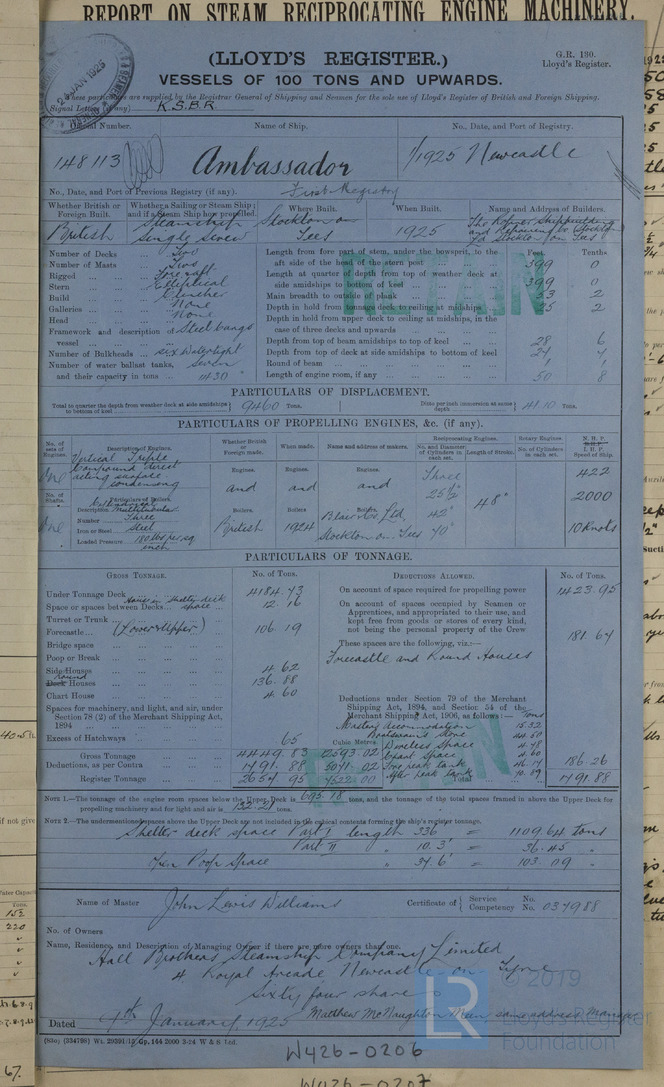 REPORT ON STEAM RECIPROCATING ENGINE MACHINERY.
(LLOYD'S REGISTER.)
G.R. 130.
Lloyd's Register.
VESSELS OF 100 TONS AND UPWARDS.
These particulars are supplied by the Registrar General of Shipping and Seamen for the sole use of Lloyd's Register of British and Foreign Shipping.
Signal Letters (if any) K.S.B.R.
Official Number. Name of Ship. No., Date, and Port of Registry.
148113 Ambassador 1/1925 Newcastle
No., Date, and Port of Previous Registry (if any). First Registry
Whether British or Foreign Built. Whether a Sailing or Steam Ship; and if a Steam Ship how propelled. Where Built. When Built. Name and Address of Builders.
British Steamship Single Screw Stockton on Tees 1925 The Ropner Shipbuilding and Repairing Co Stockton Ld Stockton on Tees
Number of Decks Two
Number of Masts Two
Rigged Fore & aft
Stern Elliptical
Build Clincher
Galleries None
Head None
Framework and description of vessel Steel
Number of Bulkheads Six Watertight
Number of water ballast tanks, Seven
and their capacity in tons 1430
Feet Tenths
Length from fore part of stem, under the bowsprit, to the aft side of the head of the stern post 399 0
Length at quarter of depth from top of weather deck at side amidships to bottom of keel 399 0
Main breadth to outside of plank 53 2
Depth in hold from tonnage deck to ceiling at midships 25 2
Depth in hold from upper deck to ceiling at midships, in the case of three decks and upwards
Depth from top of beam amidships to top of keel 28 6
Depth from top of deck at side amidships to bottom of keel
Round of beam
Length of engine room, if any 50 8
RETAIN
PARTICULARS OF DISPLACEMENT.
Total to quarter the depth from weather deck at side amidships to bottom of keel 9460 Tons. Ditto per inch immersion at same depth Tons.
PARTICULARS OF PROPELLING ENGINES, &c. (if any).
No. of sets of Engines. Description of Engines. Whether British or Foreign made. When made. Name and address of makers. Reciprocating Engines. No. and Diameter of Cylinders in each set. Length of Stroke. Rotary Engines. No. of Cylinders in each set. N.H.P. I.H.P. Speed of Ship.
One Vertical Triple Compound direct acting surface condensing
Engines. Engines. Engines. Three 422
and and and 25½" 48" 2000
No. of Shafts. Particulars of Boilers.
One Description Multitubular
Number Three
Iron or Steel Steel
Loaded Pressure 180 lbs per sq inch
Boilers. Boilers Boilers.
British 1924 Blair & Co Ltd Stockton on Tees 42" 70" 10 Knots
PARTICULARS OF TONNAGE.
GROSS TONNAGE. No. of Tons. DEDUCTIONS ALLOWED. No. of Tons.
Under Tonnage Deck 4184.73
Space or spaces between Decks 12.16
Turret or Trunk
Forecastle (Lower & Upper) 106 19
Bridge space
Poop or Break
Side Houses 4 62
Round Houses 136.88
Chart House 4 60
Spaces for machinery, and light, and air, under Section 78 (2) of the Merchant Shipping Act, 1894
Excess of Hatchways 65
Cubic Metres.
Gross Tonnage 4449 83
Deductions, as per Contra 1791. 88
Register Tonnage 2657 95
On account of space required for propelling power 1423.95
On account of spaces occupied by Seamen or Apprentices, and appropriated to their use, and kept free from goods or stores of every kind, not being the personal property of the Crew 181 67
These spaces are the following, viz.:—
Forecastle and Round Houses
Deductions under Section 79 of the Merchant Shipping Act, 1894, and Section 54 of the Merchant Shipping Act, 1906, as follows:— Tons
Masters accommodation
Boatswain's Store
Wireless Space
Chart Space 4.60
Fore peak tank
After peak tank
186 26
Total 1791.88
NOTE 1.—The tonnage of the engine room spaces below the Upper Deck is 695.78 tons, and the tonnage of the total spaces framed in above the Upper Deck for propelling machinery and for light and air is tons.
NOTE 2.—The undermentioned spaces above the Upper Deck are not included in the cubical contents forming the ship's register tonnage.
Shelter deck space Part I length 336 = 1109.64 tons
Part II " 10.3' = 36.45 "
Open Poop Space " 37.6' = 103.09 "
Name of Master John Lewis Williams Certificate of { Service No. Competency No. 037988
No. of Owners
Name, Residence, and Description of Managing Owner if there are more owners than one.
Hall Brothers Steamship Company Limited
4 Royal Arcade Newcastle on Tyne
Sixty four shares
Matthew McNaughton Mein same address Manager
Dated 9th January 1925
LR
© 2019
Lloyd's Register
Foundation
W426-0206
W426-0207